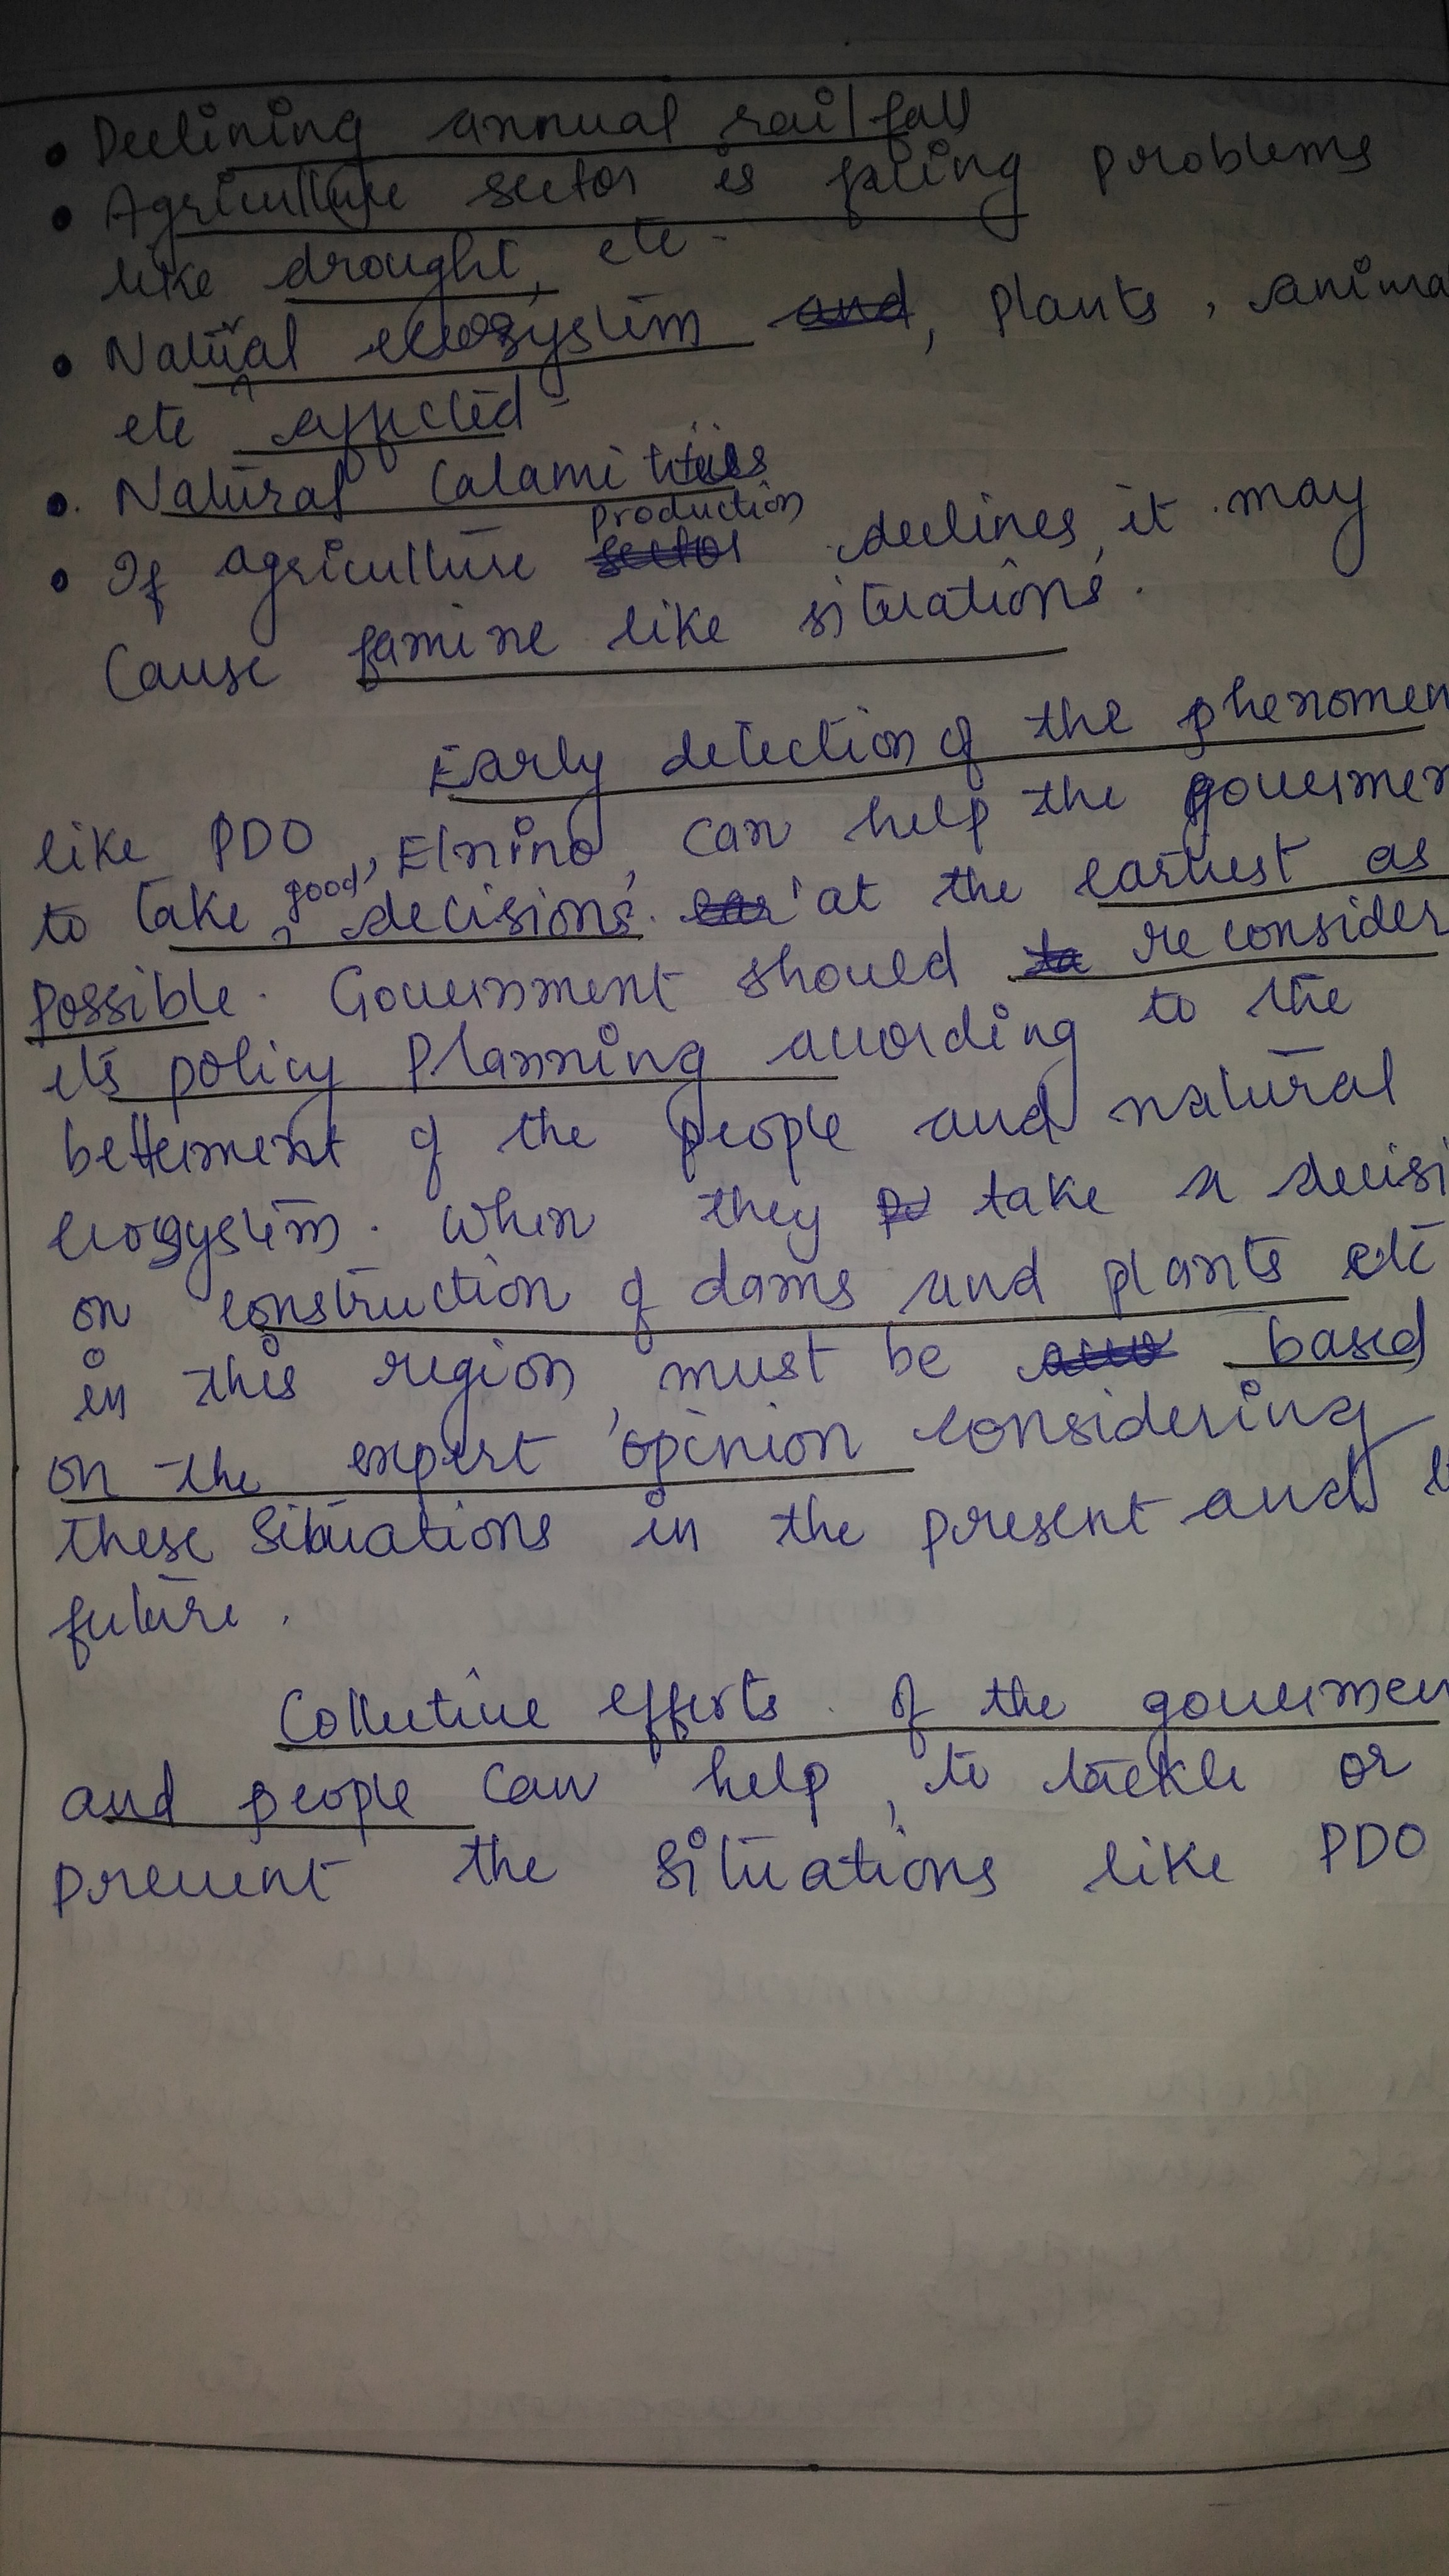 • Declining annual railfall
• Agriculture sector is facing problems
like drought, etc.
• Natural ecosystem and, plants, anima
etc affected
• Natural Calamities
production
• If agriculture sector declines, it may
Cause famine like situations.
Early detection of the phenomen
like PDO, Elnino, can help the governmen
good
to take decisions at the earliest as
possible. Government should to reconsider
its policy planning according to the
betterment of the people and natural
ecosystem. When they take a decisi
on construction of dams and plants etc
in this region, must be based
on the expert opinion considering
these situations in the present and
future.
Collective efforts of the governmen
and people can help, to tackle or
prevent the situations like PDO